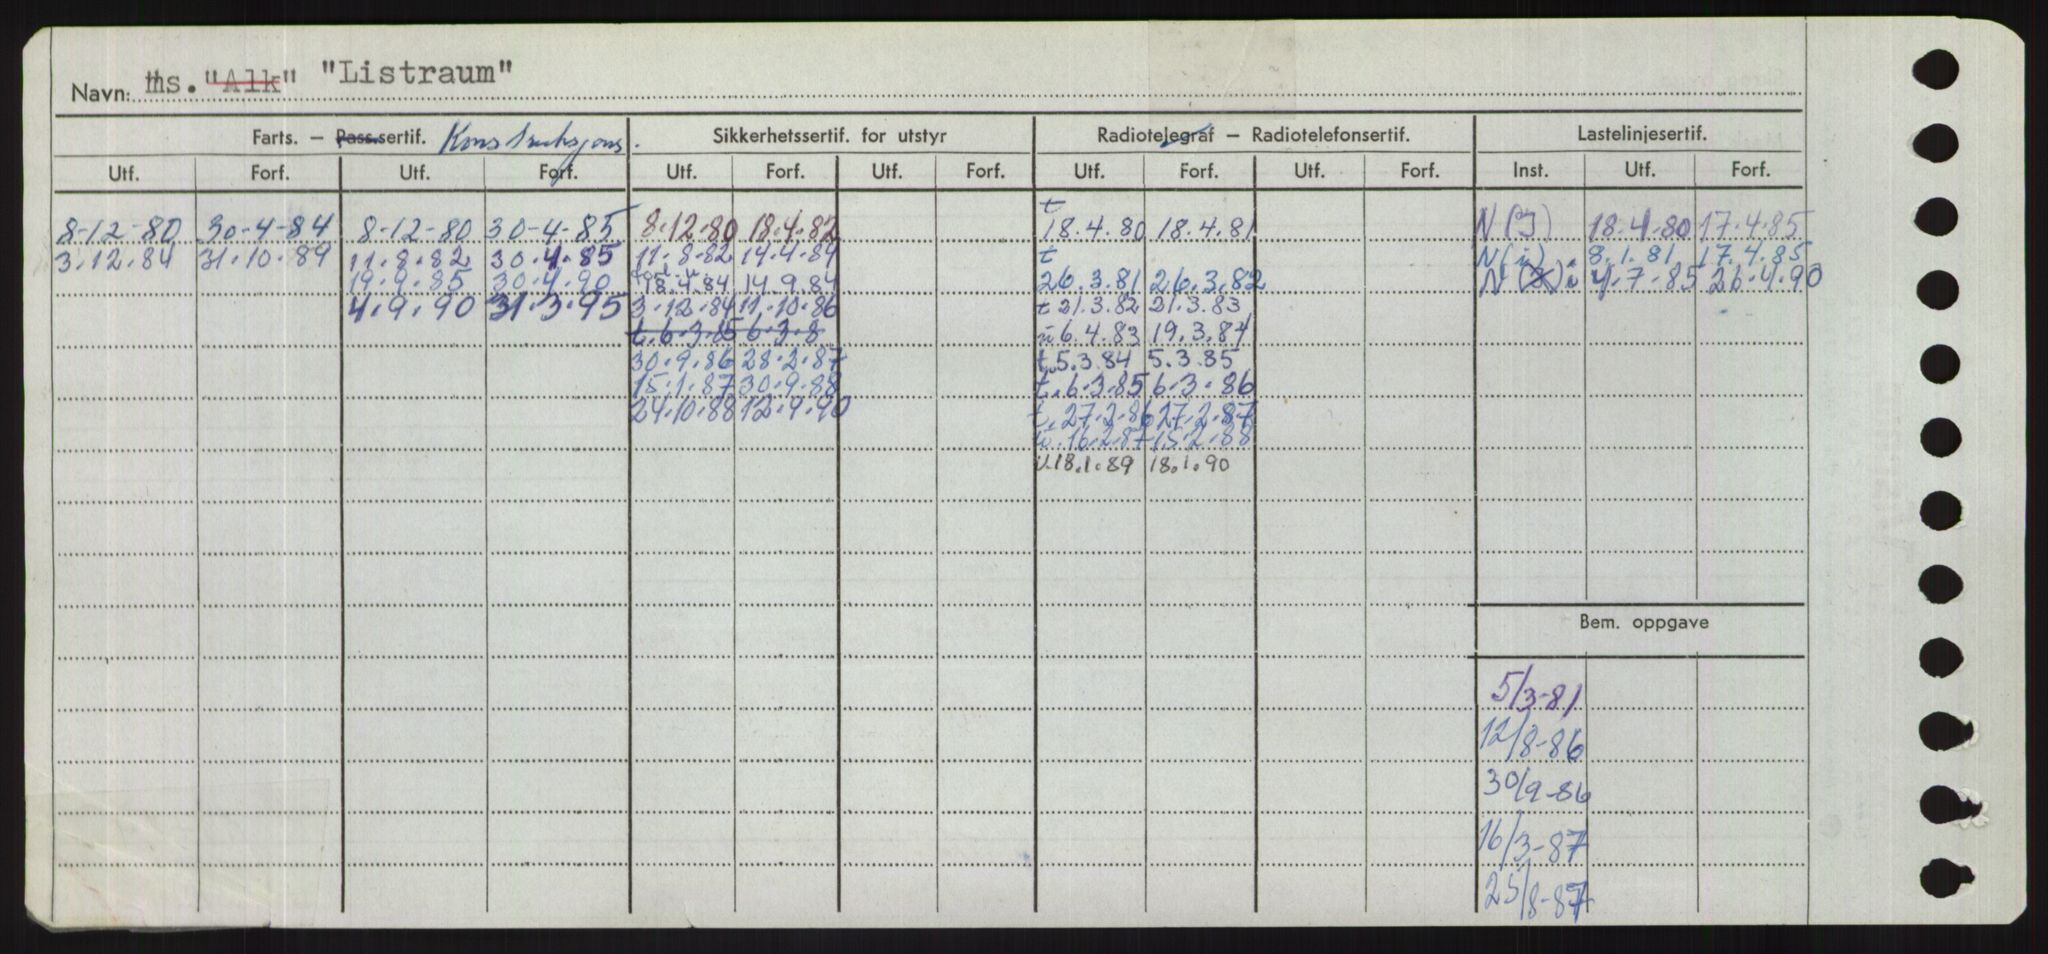 Navn: ms. "Alk" "Listraum"
Farts. – Pass.sertif. Konstruksjons. Sikkerhetssertif. for utstyr Radiotelegraf – Radiotelefonsertif. Lastelinjesertif.
Utf. Forf. Utf. Forf. Utf. Forf. Utf. Forf. Utf. Forf. Utf. Forf. Inst. Utf. Forf.
t
8-12-80 30-4-84 8-12-80 30-4-85 8.12.80 18.4.82 18.4.80 18.4.81 N(J) 18.4.80 17.4.85
3.12.84 31.10.89 11.8.82 30.4.85 11.8.82 14.4.84 t N(i) 8.1.81 17.4.85
19.9.85 30.4.90 18.4.84 14.9.84 26.3.81 26.3.82 N i 4.7.85 26.4.90
4.9.90 31.3.95 3.12.84 11.10.86 t 21.3.82 21.3.83
t.6.3.85 6.3.8 n 6.4.83 19.3.84
30.9.86 28.2.87 t.5.3.84 5.3.85
15.1.87 30.9.88 t.6.3.85 6.3.86
24.10.88 12.9.90 t.27.2.86 27.2.87
16.2.87 15.2.88
18.1.89 18.1.90
Bem. oppgave
5/3-81
12/8-86
30/9-86
16/3-87
25/8-87